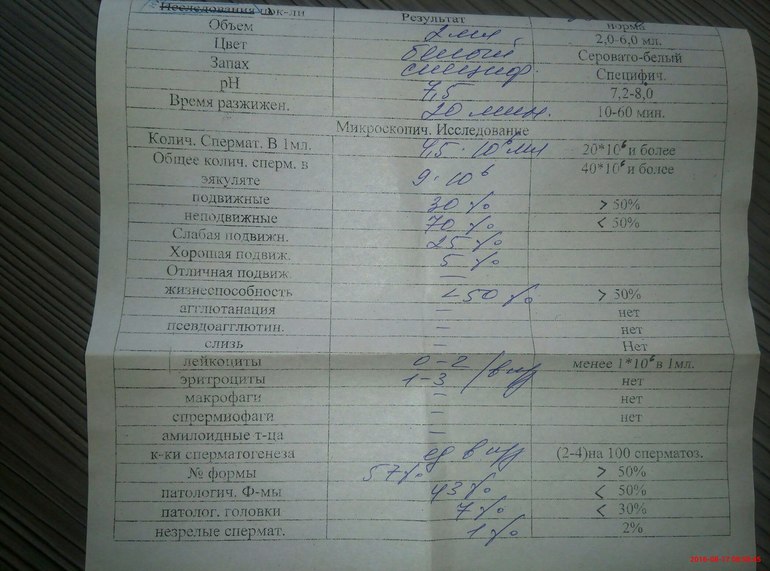 Исследования пок-ли Результат норма
Объем 2 мл 2,0-6,0 мл.
Цвет белый Серовато-белый
Запах специф. Специфич.
pH 7,5 7,2-8,0
Время разжижен. 20 мин. 10-60 мин.
Микроскопич. Исследование
Колич. Спермат. В 1мл. 20*10⁶ и более
Общее колич. сперм. в эякуляте 9·10⁶ 40*10⁶ и более
подвижные 30 % > 50%
неподвижные 70 % < 50%
Слабая подвижн. 25 %
Хорошая подвиж. 5 %
Отличная подвиж. —
жизнеспособность <50 % > 50%
агглютанация — нет
псевдоагглютин. — нет
слизь — Нет
лейкоциты 0-2 менее 1*10⁶ в 1мл.
эритроциты 1-3 /в п/з нет
макрофаги — нет
спрермиофаги — нет
амилоидные т-ца —
к-ки сперматогенеза ед в п/з (2-4)на 100 сперматоз.
№ формы 57% > 50%
патологич. Ф-мы 43% < 50%
патолог. головки 7% < 30%
незрелые спермат. 1% 2%